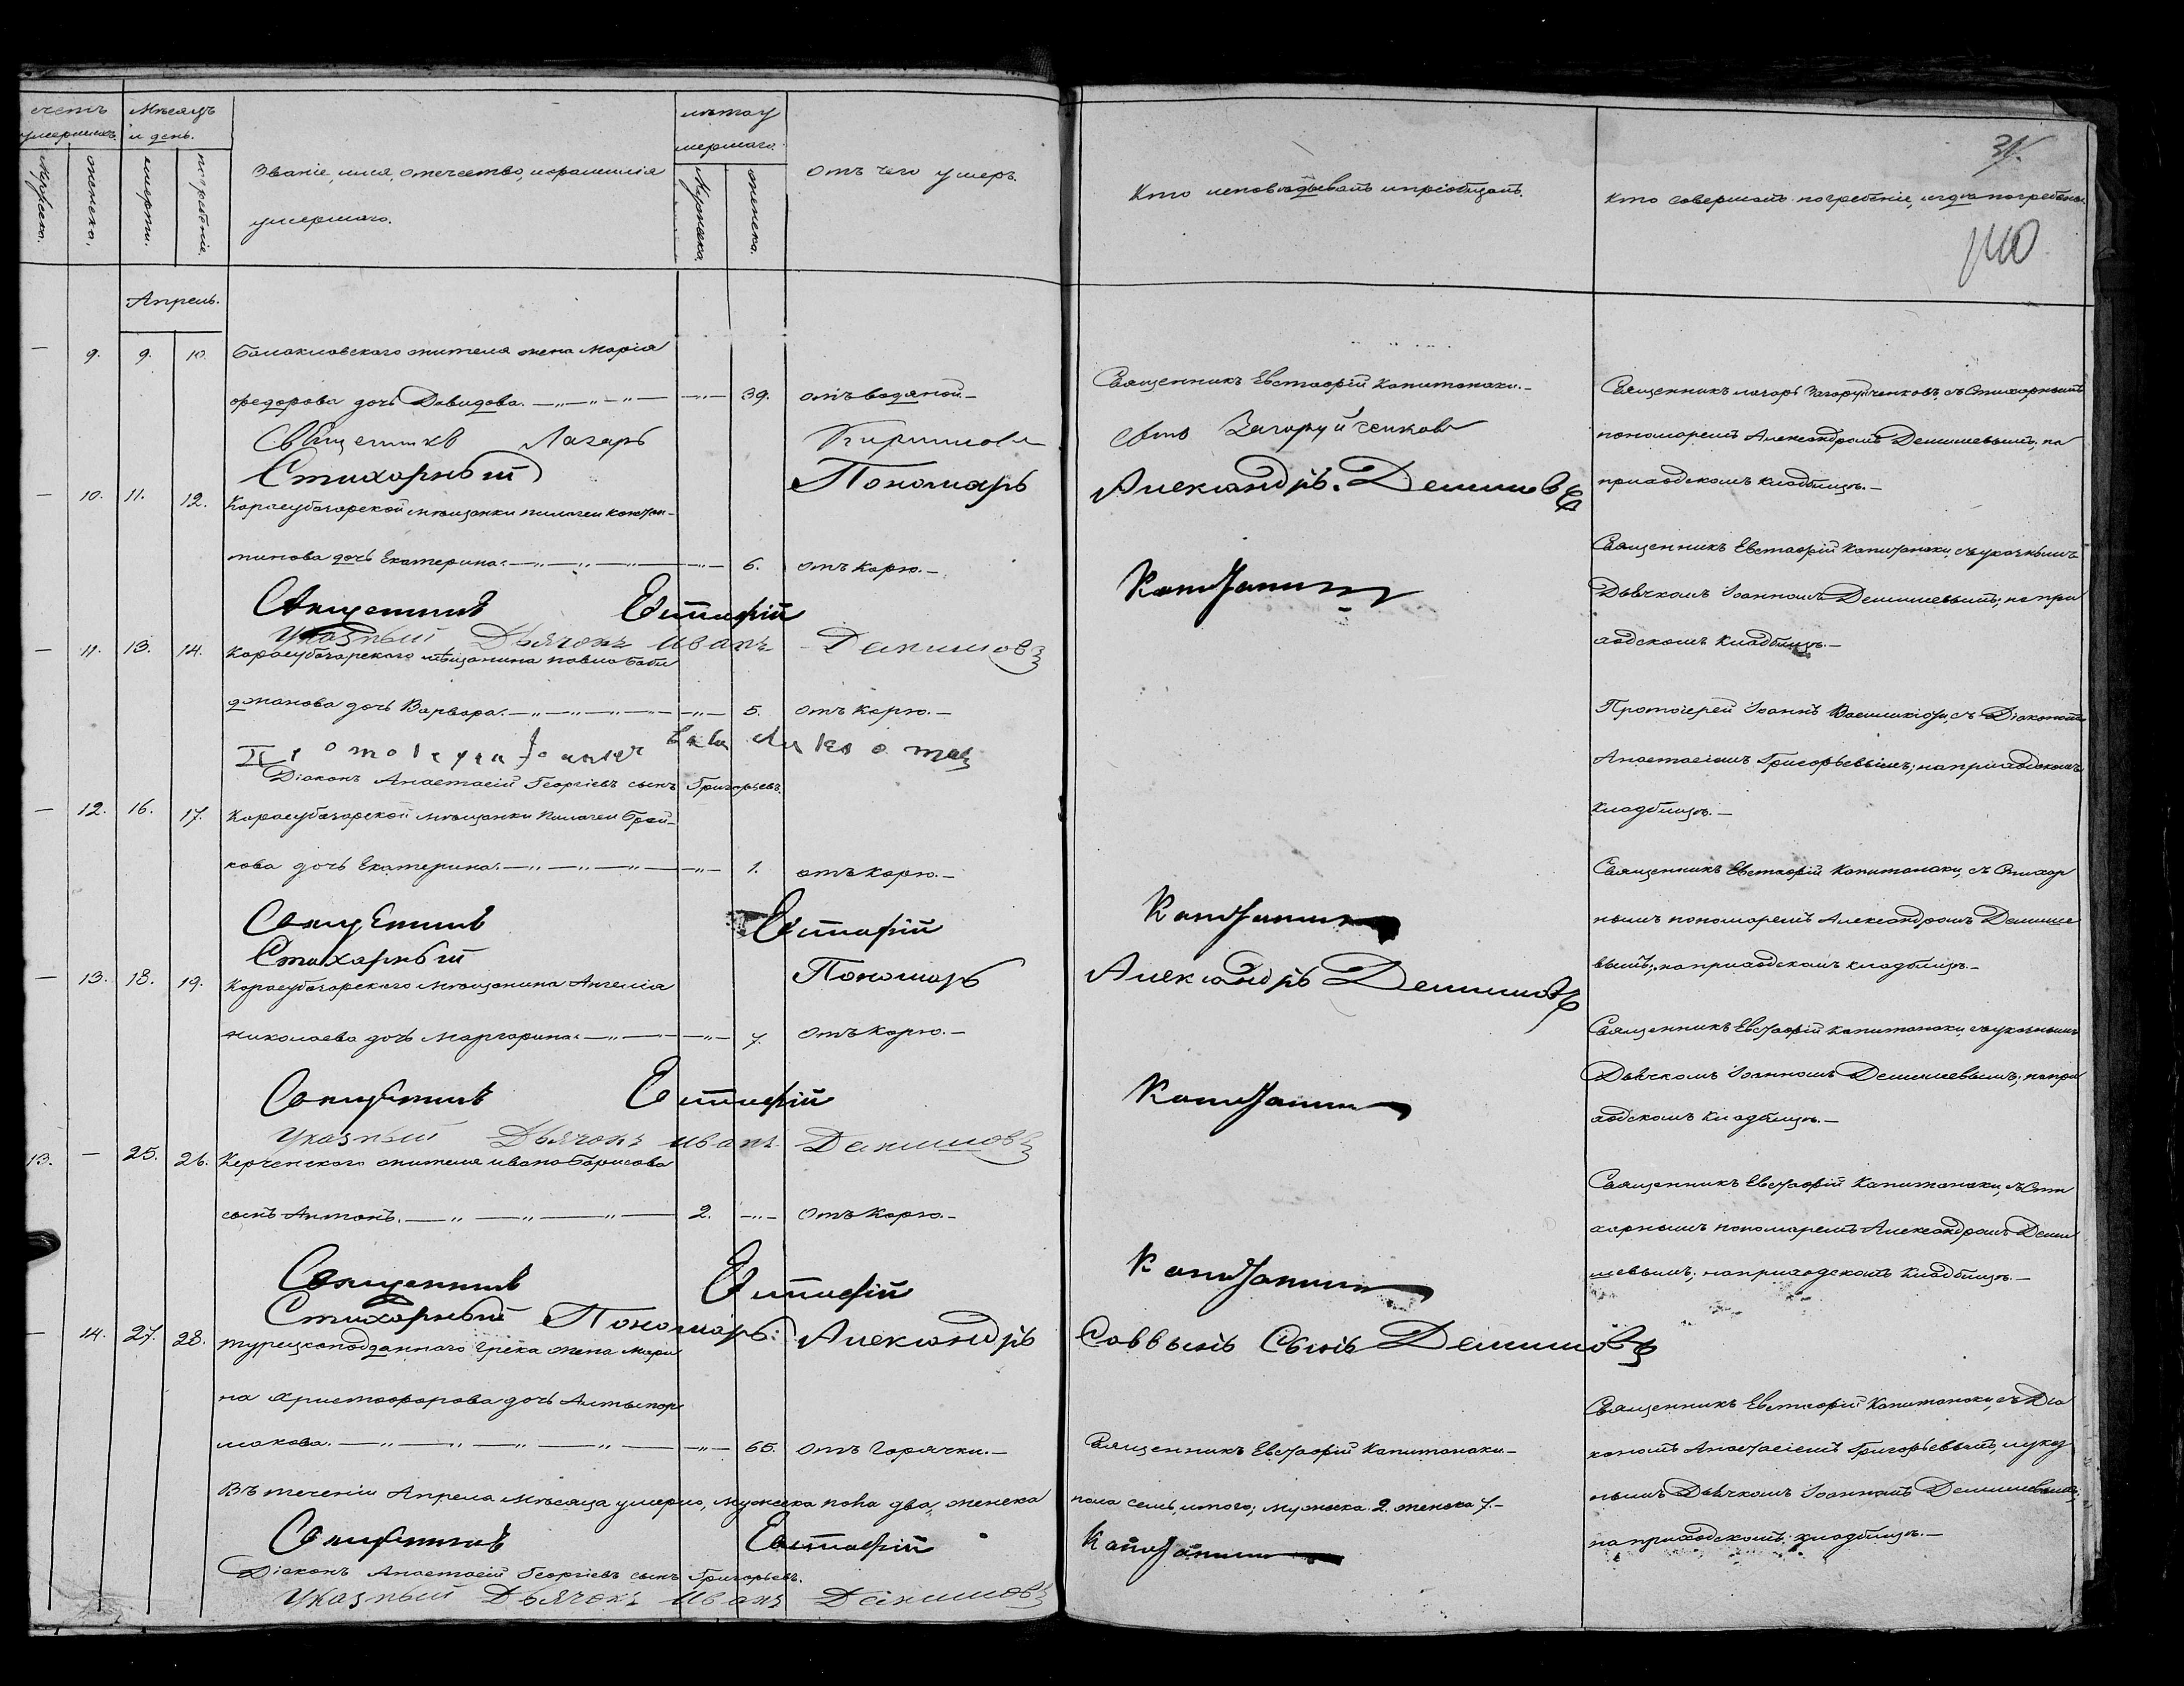 счетъ умершихъ.
Мѣсяцъ и день.
Званіе, имя, отчество, и фамилія
умершаго.
лѣта у
мершаго.
отъ чего умеръ.
Кто исповѣдывалъ и пріобщалъ.
Кто совершалъ погребеніе, и гдѣ погребены.
31.
140
Мужеска. женска. смерти. погребенія. Мужеска. женска.
Апрель.
— 9. 9. 10. Балаклавскаго жителя жена Марія
Федорова дочь Давидова. 39. отъ водяной. —
Священникъ Евстафій Капитанаки. —
Священникъ Лазарь Кирилловъ сынъ Загоруйченковъ
Стихарный Пономарь Александръ Демишевъ
Священникъ лазарь Загоруйченковъ, съ Стихарнымъ
пономаремъ Александромъ Демишевымъ; на
приходскомъ кладбищѣ. —
— 10. 11. 12. Карасубазарской мѣщанки пилагеи Констан-
тинова дочь Екатерина. 6. отъ корю. —
Священникъ Евстафій Капитанаки
Указный Дьячокъ Иванъ Демишовъ
Священникъ Евстафій Капитанаки, съ указнымъ
Дьячкомъ Іоанномъ Демишевымъ; на при
ходскомъ кладбищѣ. —
— 11. 13. 14. Карасубазарскаго мѣщанина павла Баби
джанова дочь Варвара. 5. отъ корю. —
Протоіерей Іоаннъ
Діаконъ Анастасій Георгіевъ сынъ Григорьевъ.
Протоіерей Іоаннъ Василькіоти, съ Діакономъ
Анастасіемъ Григорьевымъ; на приходскомъ
кладбищѣ. —
— 12. 16. 17. Карасубазарской мѣщанки Пилагеи Брай-
кова дочь Екатерина. 1. отъ корю. —
Священникъ Евстафій Капитанаки
Стихарный Пономарь Александръ Демишовъ
Священникъ Евстафій Капитанаки, съ Стихар
нымъ пономаремъ Александромъ Демише
вымъ; на приходскомъ кладбищѣ. —
— 13. 18. 19. Карасубазарскаго мѣщанина Ангелія
Николаева дочь Маргарина. 7. отъ корю. —
Священникъ Евстафій Капитанаки
Указный Дьячокъ Иванъ Демишовъ
Священникъ Евстафій Капитанаки, съ указнымъ
Дьячкомъ Іоанномъ Демишевымъ; на при
ходскомъ кладбищѣ. —
13. — 25. 26. Керченскаго жителя ивана Борисова
сынъ Антонъ. 2. отъ корю. —
Священникъ Евстафій Капитанаки
Стихарный Пономарь: Александръ Саввынъ Сынъ Демишовъ
Священникъ Евстафій Капитанаки, съ Сти
харнымъ пономаремъ Александромъ Деми
шевымъ; на приходскомъ кладбищѣ. —
— 14. 27. 28. турецкоподданнаго Грека жена Мари
на Христофорова дочь Алтыпар
макова. 65. отъ Горячки. —
Священникъ Евстафій Капитанаки. —
Въ теченіи Апреля мѣсяца умерло, мужеска пола два, женска пола семь, итого; мужеска 2. женска 7. —
Священникъ Евстафій Капитанаки
Діаконъ Анастасій Георгіевъ сынъ Григорьевъ.
Указный Дьячокъ Иванъ Демишовъ
Священникъ Евстафій Капитанаки, съ Діа
кономъ Анастасіемъ Григорьевымъ, и указ
нымъ Дьячкомъ Іоанномъ Демишевымъ;
на приходскомъ кладбищѣ. —